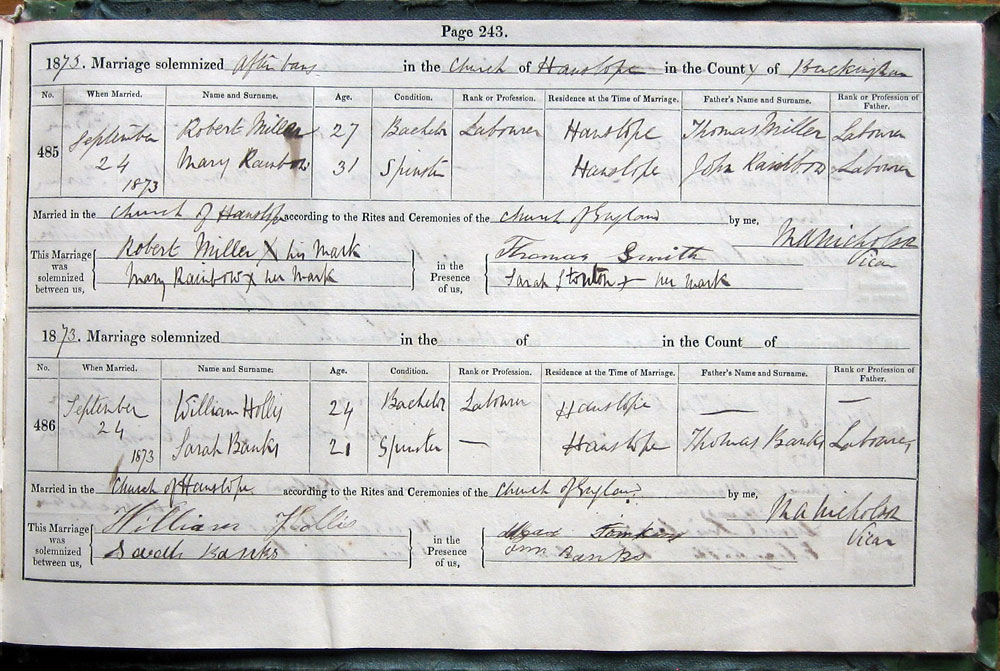 Page 243.
1873. Marriage solemnized after bans in the Church of Hanslope in the County of Buckingham
No. When Married. Name and Surname. Age. Condition. Rank or Profession. Residence at the Time of Marriage. Father's Name and Surname. Rank or Profession of Father.
485 September 24 1873 Robert Miller 27 Bachelor Labourer Hanslope Thomas Miller Labourer
Mary Rainbow 31 Spinster Hanslope John Rainbow Labourer
Married in the Church of Hanslope according to the Rites and Ceremonies of the Church of England by me,
M A Nicholson
Vicar
This Marriage was solemnized between us, Robert Miller X his mark in the Presence of us, Thomas Smith
Mary Rainbow X her mark Sarah Stonton X her mark
1873. Marriage solemnized in the of in the Count of
No. When Married. Name and Surname. Age. Condition. Rank or Profession. Residence at the Time of Marriage. Father's Name and Surname. Rank or Profession of Father.
486 September 24 1873 William Hollis 24 Bachelor Labourer Hanslope — —
Sarah Banks 21 Spinster — Hanslope Thomas Banks Labourer
Married in the Church of Hanslope according to the Rites and Ceremonies of the Church of England by me,
M A Nicholson
Vicar
This Marriage was solemnized between us, William Hollis in the Presence of us, Tomkins
Sarah Banks Banks